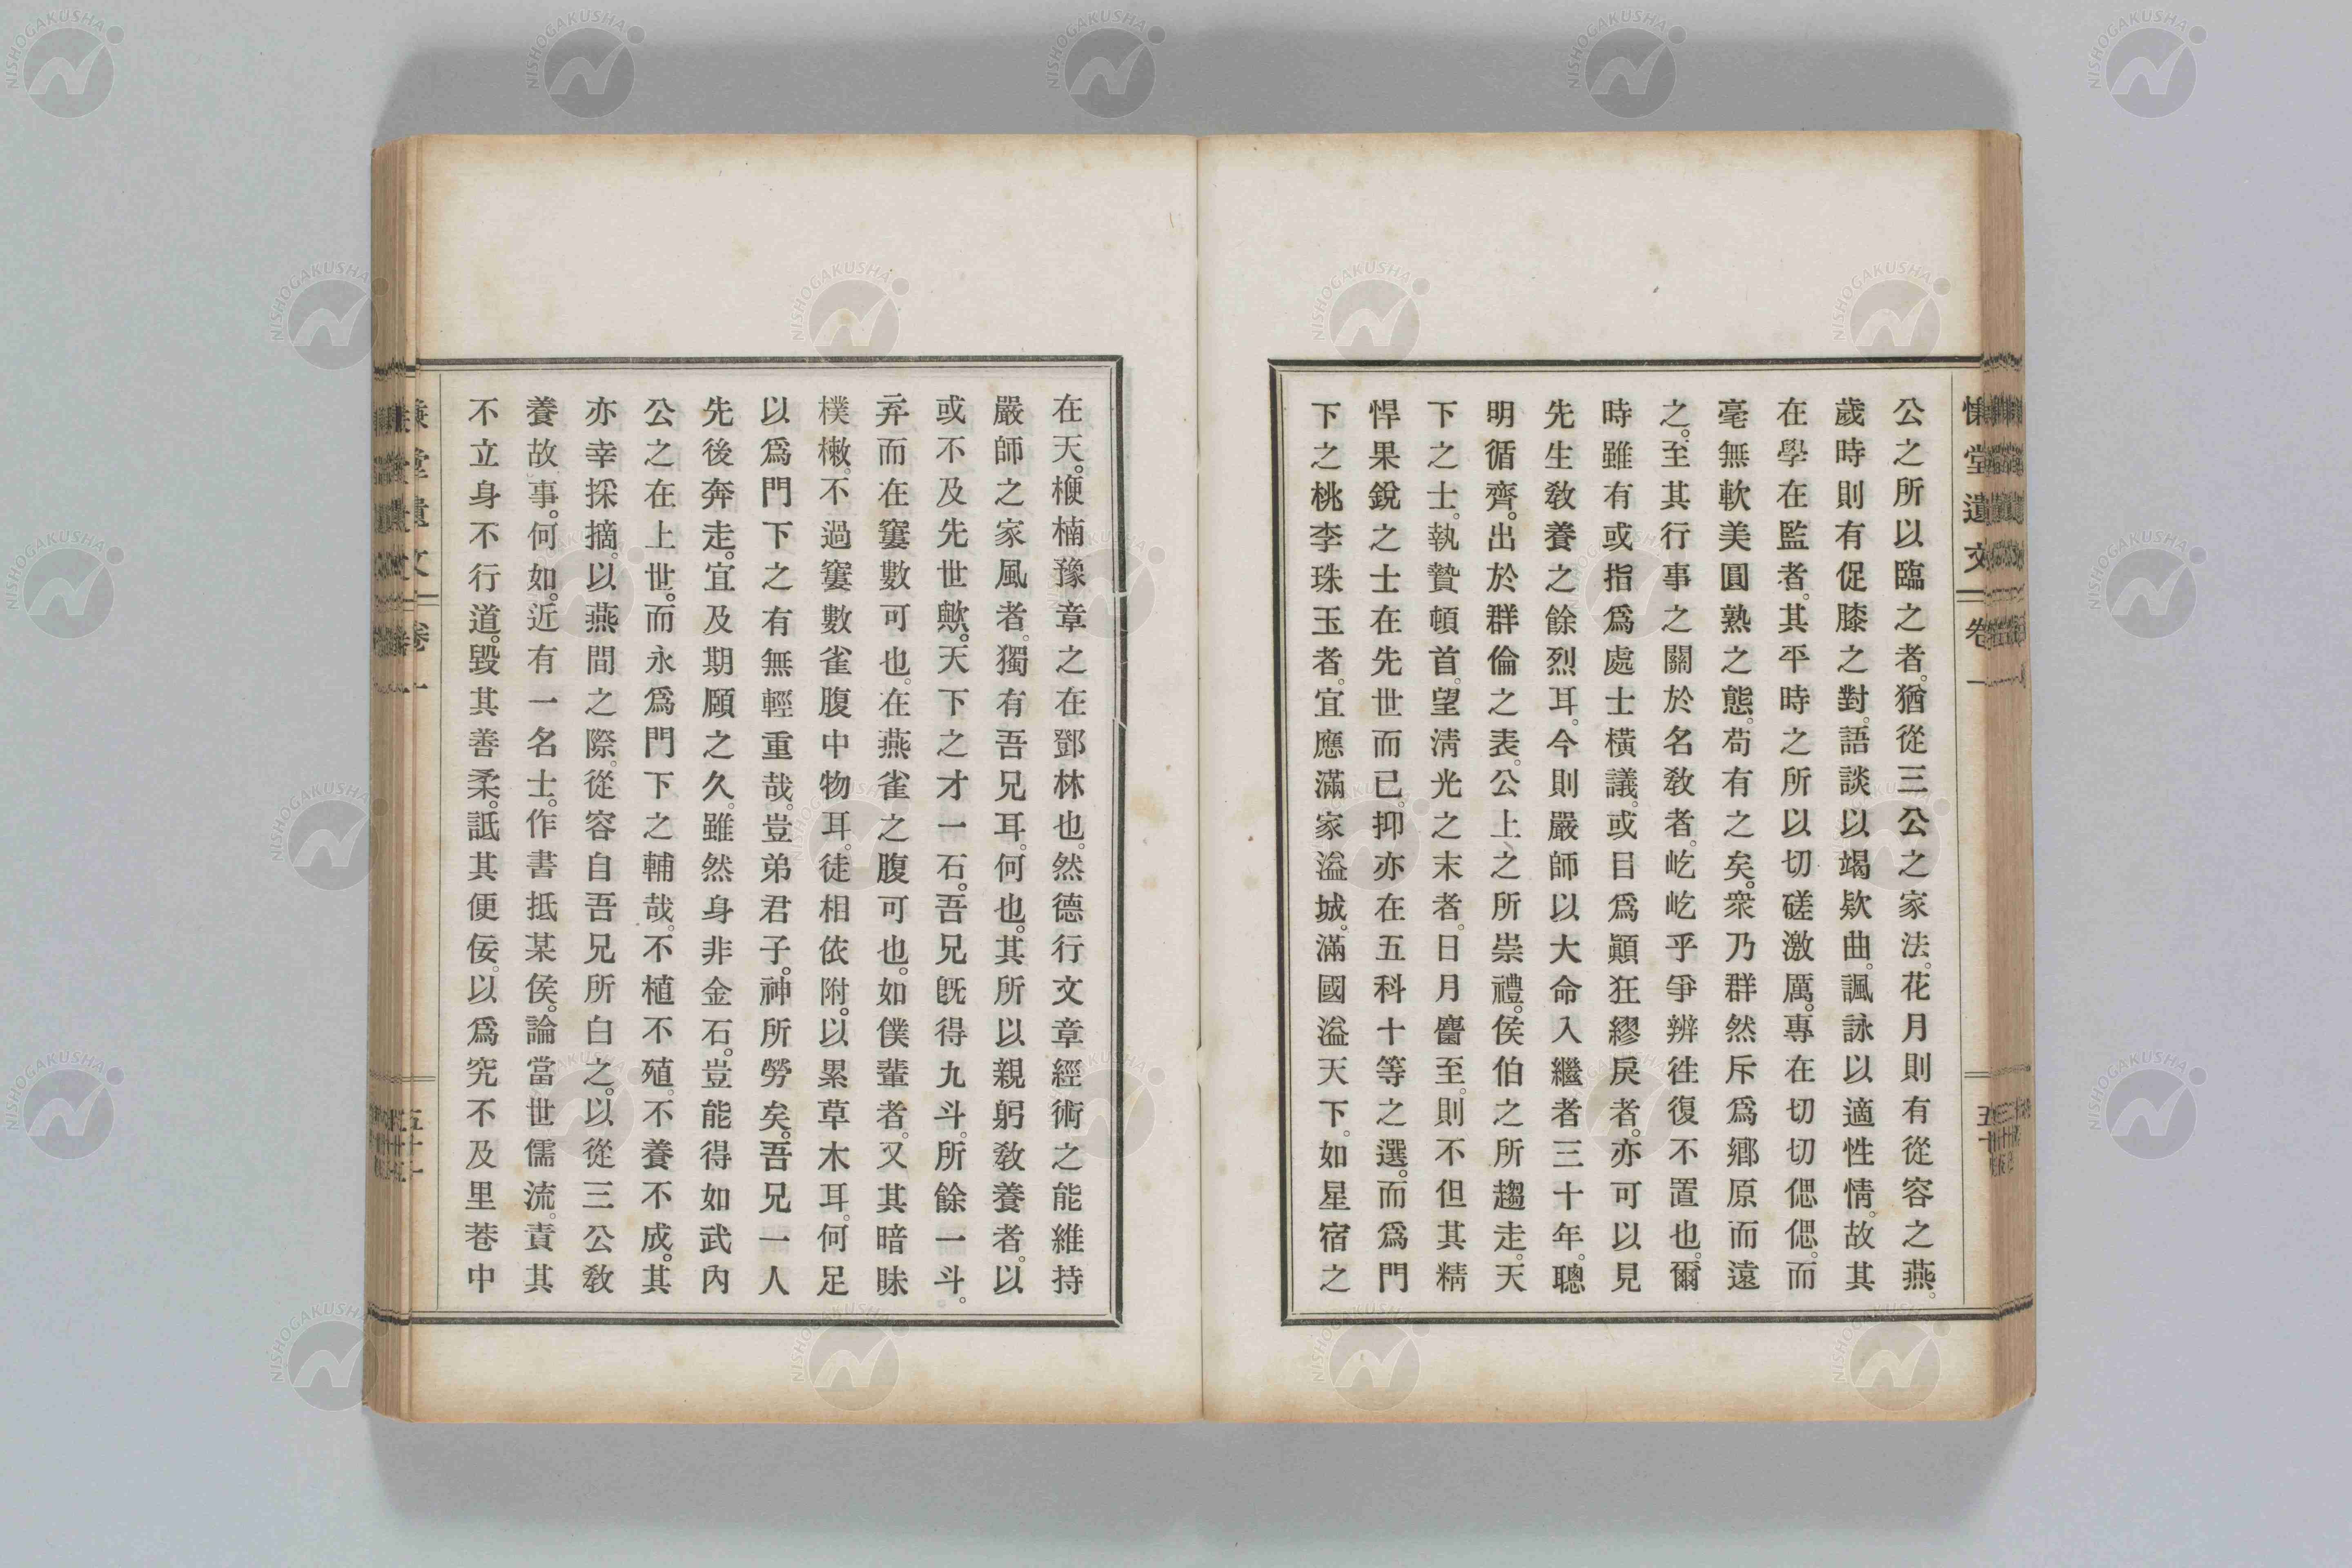 公之所以臨之者。猶從三公之家法。花月則有從容之燕。
歲時則有促膝之對。語談以竭欵曲。諷詠以適性情。故其
在學在監者。其平時之所以切磋激厲。專在切切偲偲。而
毫無軟美圓熟之態。苟有之矣。衆乃群然斥爲鄕原而遠
之。至其行事之關於名敎者。屹屹乎爭辨徃復不置也。爾
時雖有或指爲處士橫議。或目爲顚狂繆戾者。亦可以見
先生敎養之餘烈耳。今則嚴師以大命入繼者三十年。聰
明循齊。出於群倫之表。公上之所崇禮。侯伯之所趨走。天
下之士。執贄頓首。望淸光之末者。日月麕至。則不但其精
悍果銳之士在先世而已。抑亦在五科十等之選。而爲門
下之桃李珠玉者。宜應滿家溢城。滿國溢天下。如星宿之
在天。楩楠豫章之在鄧林也。然德行文章經術之能維持
嚴師之家風者。獨有吾兄耳。何也。其所以親躬敎養者。以
或不及先世歟。天下之才一石。吾兄旣得九斗。所餘一斗。
弃而在窶數可也。在燕雀之腹可也。如僕輩者。又其暗昧
樸樕。不過窶數雀腹中物耳。徒相依附。以累草木耳。何足
以爲門下之有無輕重哉。豈弟君子。神所勞矣。吾兄一人
先後奔走。宜及期願之久。雖然身非金石。豈能得如武內
公之在上世。而永爲門下之輔哉。不植不殖。不養不成。其
亦幸採摘。以燕間之際。從容自吾兄所白之。以從三公敎
養故事。何如。近有一名士。作書抵某侯。論當世儒流。責其
不立身不行道。毀其善柔。詆其便佞。以爲究不及里巷中
NISHOGAKUSHA